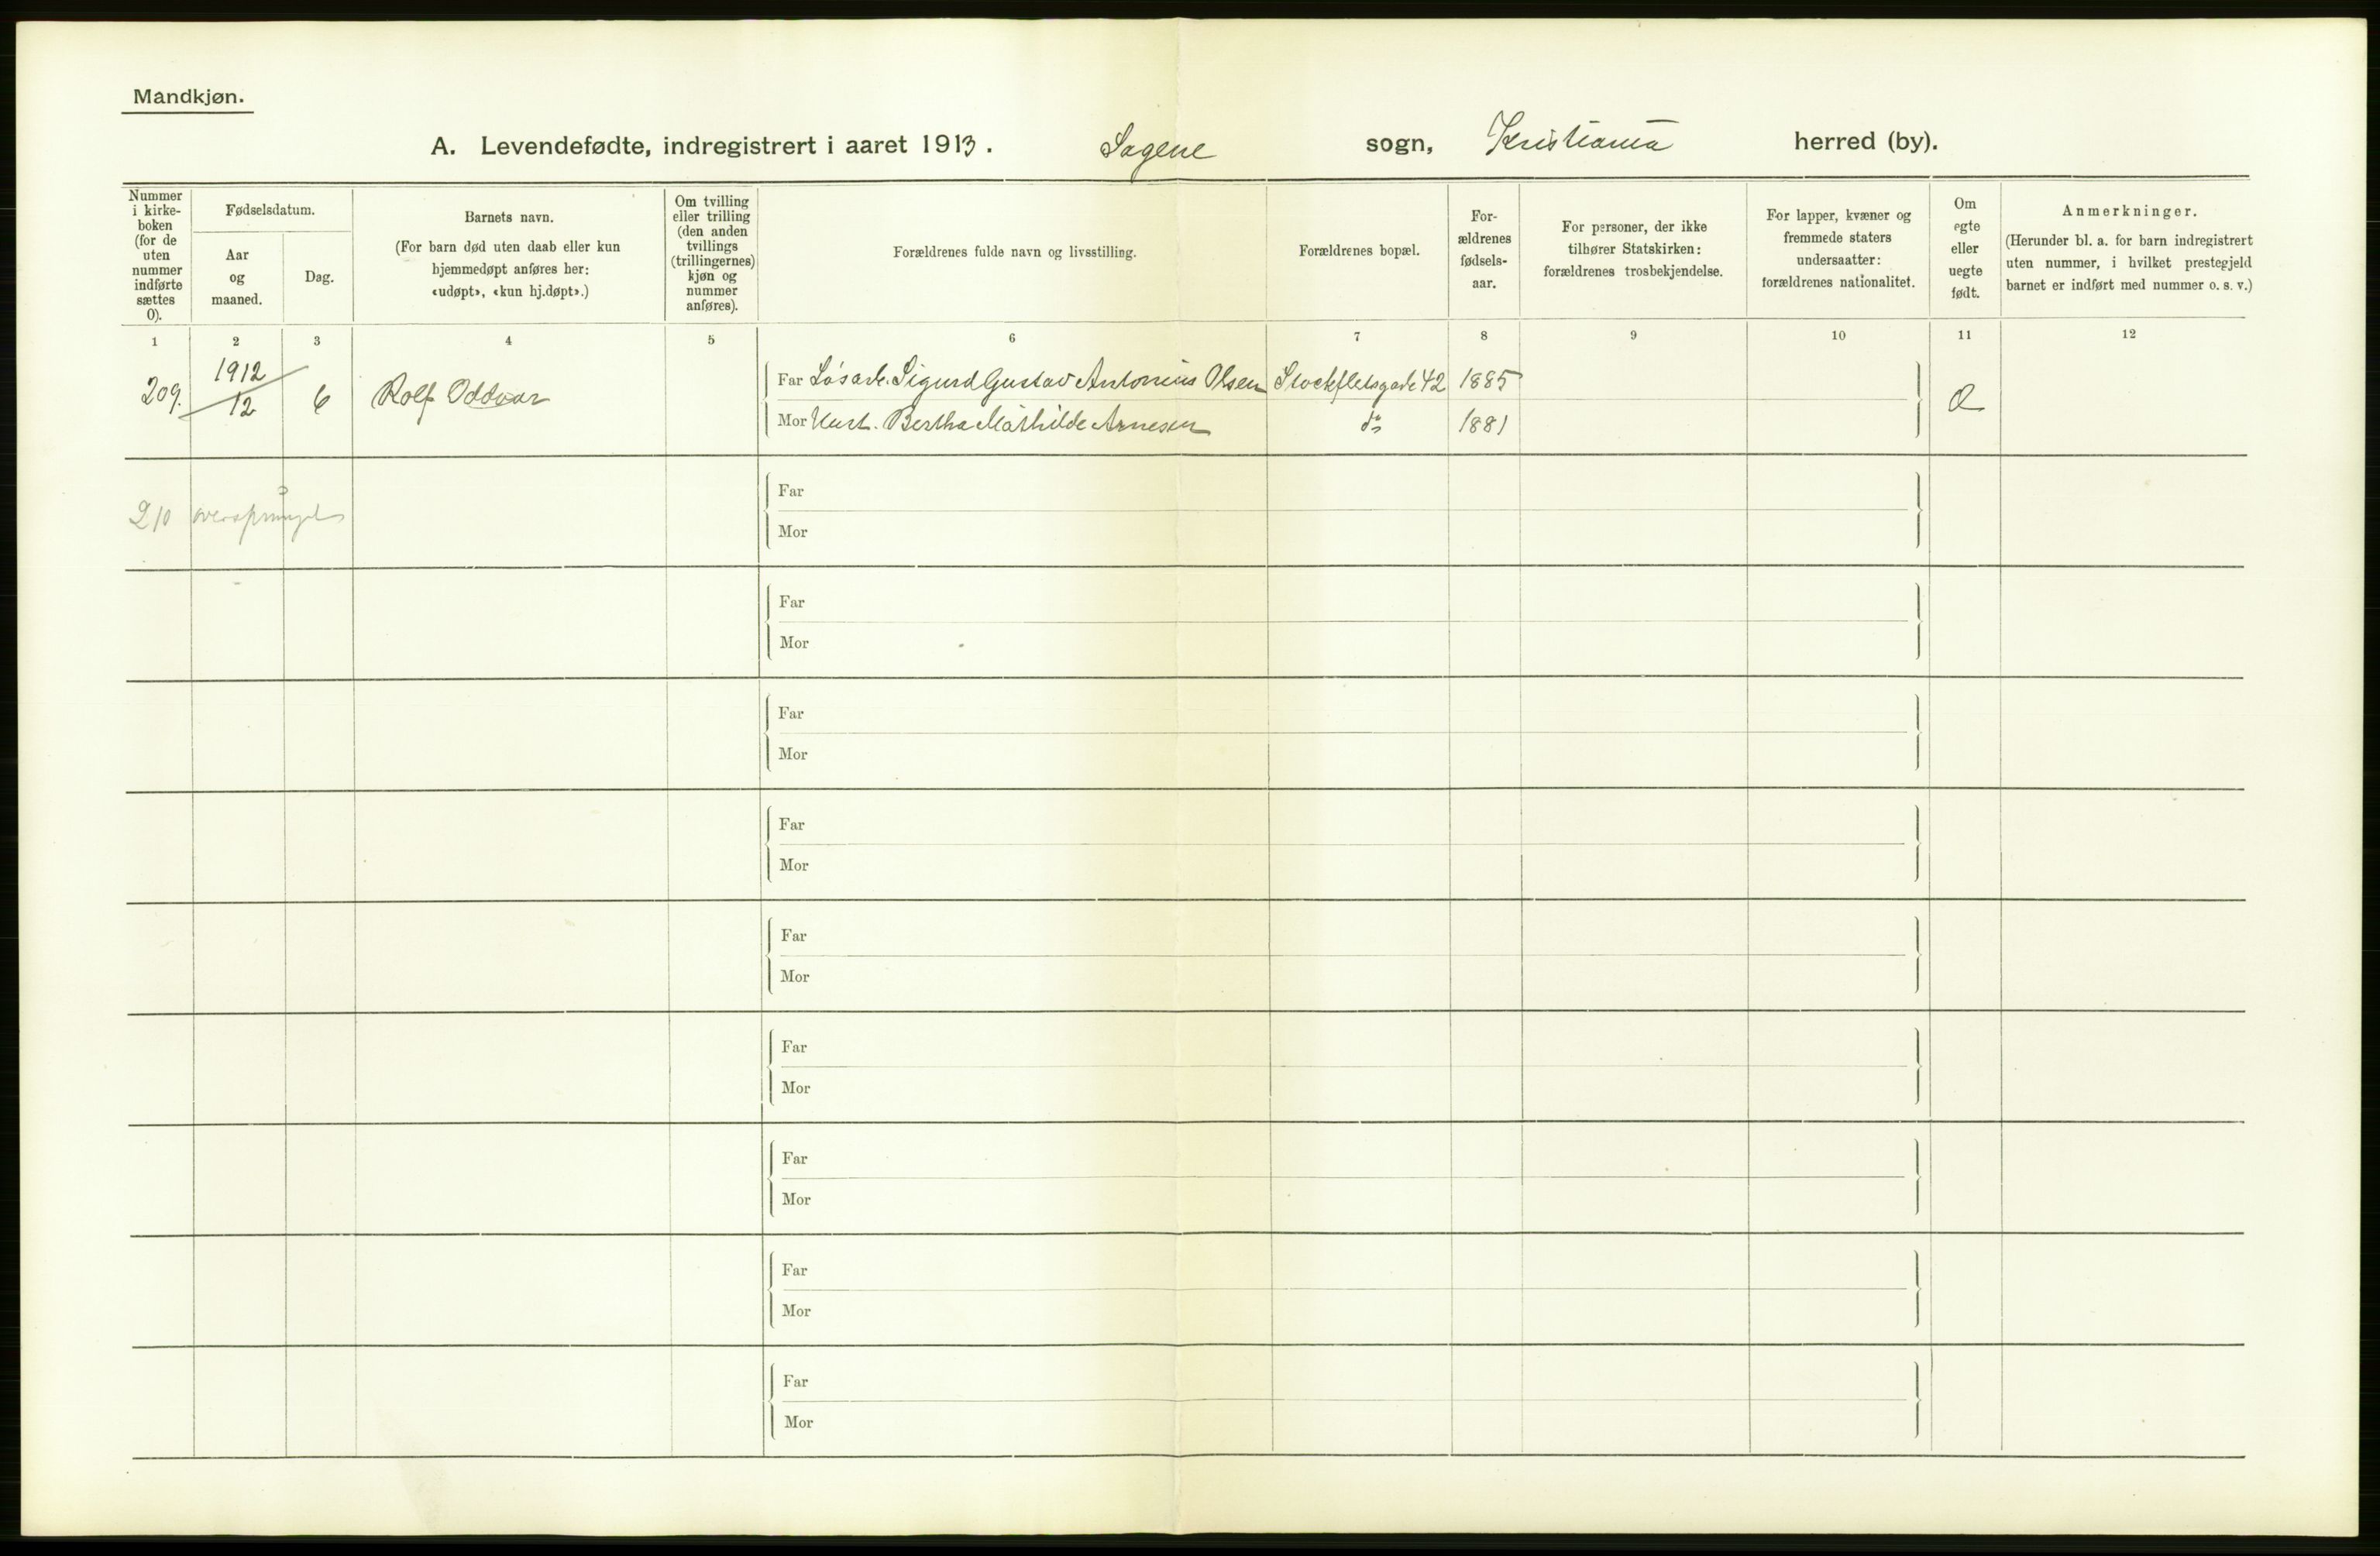 Mandkjøn.
A. Levendefødte, indregistrert i aaret 1913. Sagene sogn, Kristiania herred (by).
Nummer
i kirke-
boken
(for de
uten
nummer
indførte
sættes
0).
Fødselsdatum.
Aar
og
maaned.
Dag.
Barnets navn.
(For barn død uten daab eller kun
hjemmedøpt anføres her:
«udøpt», «kun hj.døpt».)
Om tvilling
eller trilling
(den anden
tvillings
(trillingernes)
kjøn og
nummer
anføres).
Forældrenes fulde navn og livsstilling.
Forældrenes bopæl.
For-
ældrenes
fødsels-
aar.
For personer, der ikke
tilhører Statskirken:
forældrenes trosbekjendelse.
For lapper, kvæner og
fremmede staters
undersaatter:
forældrenes nationalitet.
Om
egte
eller
uegte
født.
Anmerkninger.
(Herunder bl. a. for barn indregistrert
uten nummer, i hvilket prestegjeld
barnet er indført med nummer o. s. v.)
1 2 3 4 5 6 7 8 9 10 11 12
209. 1912 12 6 Rolf Oddvar
Far Løsarb. Sigurd Gustav Antonius Olsen Stockfletsgade 42 1885
Mor Hust. Bertha Mathilde Arnesen do 1881
210 oversprunget
Far
Mor
Far
Mor
Far
Mor
Far
Mor
Far
Mor
Far
Mor
Far
Mor
Far
Mor
Far
Mor